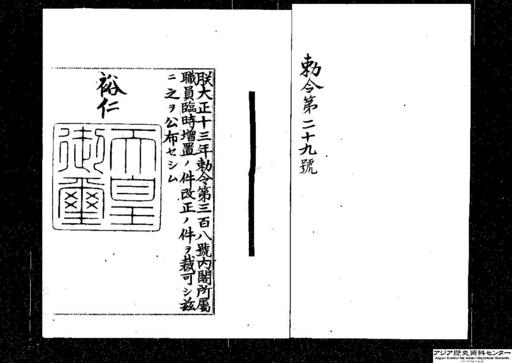 勅令第二十九號
朕大正十三年勅令第三百八號内閣所屬
職員臨時增置ノ件改正ノ件ヲ裁可シ茲
ニ之ヲ公布セシム
裕仁
天皇
御璽
アジア歴史資料センター
Japan Center for Asian Historical Records